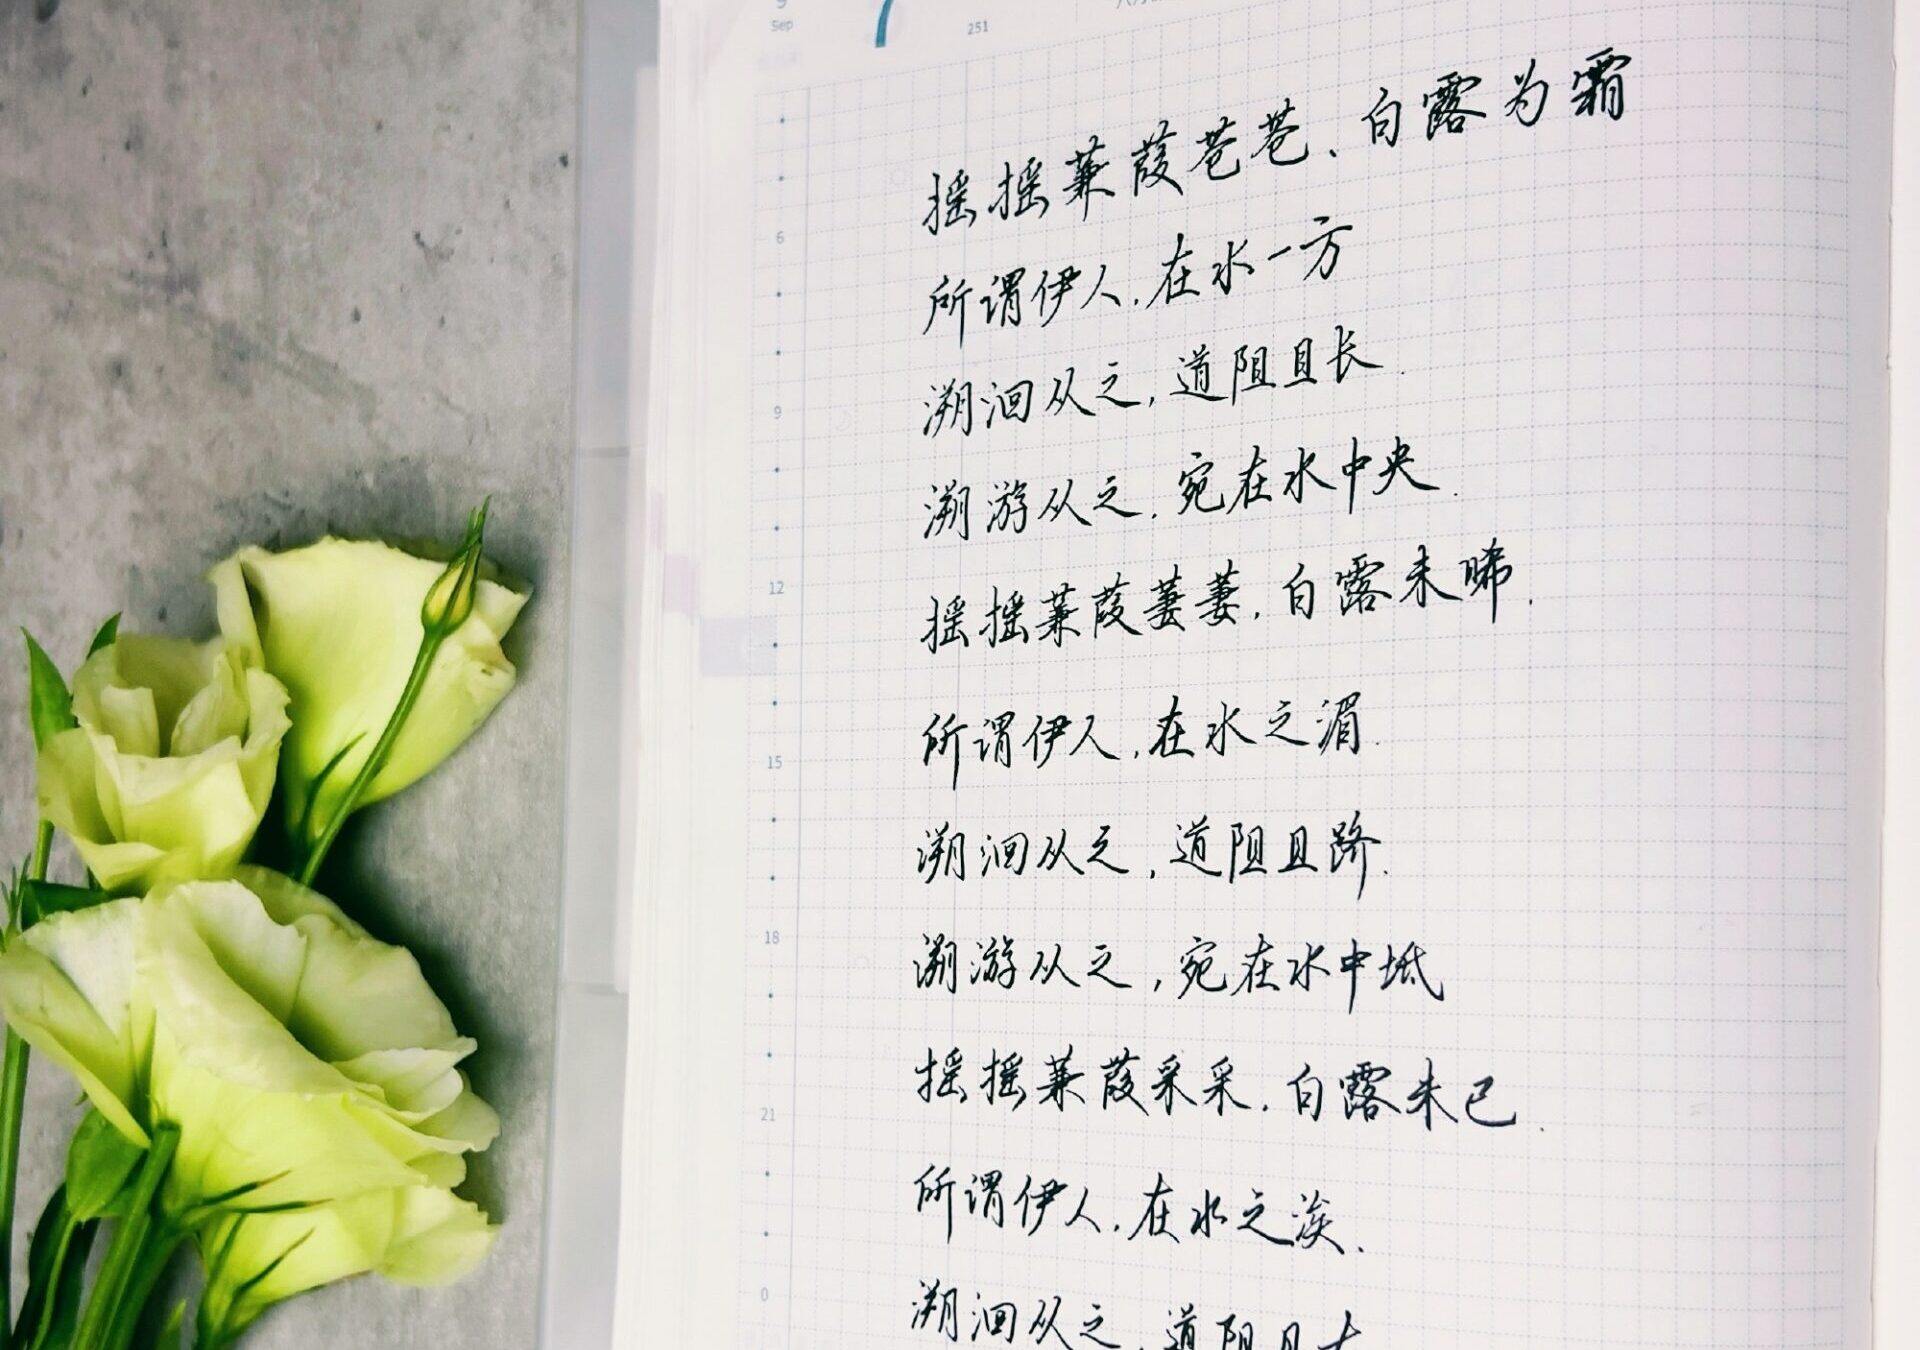 Sep
7
251
摇摇蒹葭苍苍、白露为霜
所谓伊人,在水一方
溯洄从之,道阻且长.
溯游从之.宛在水中央.
摇摇蒹葭萋萋,白露未晞.
所谓伊人,在水之湄.
溯洄从之,道阻且跻.
溯游从之,宛在水中坻
摇摇蒹葭采采.白露未已.
所谓伊人.在水之涘.
溯洄从之,道阻且
6
9
12
15
18
21
0